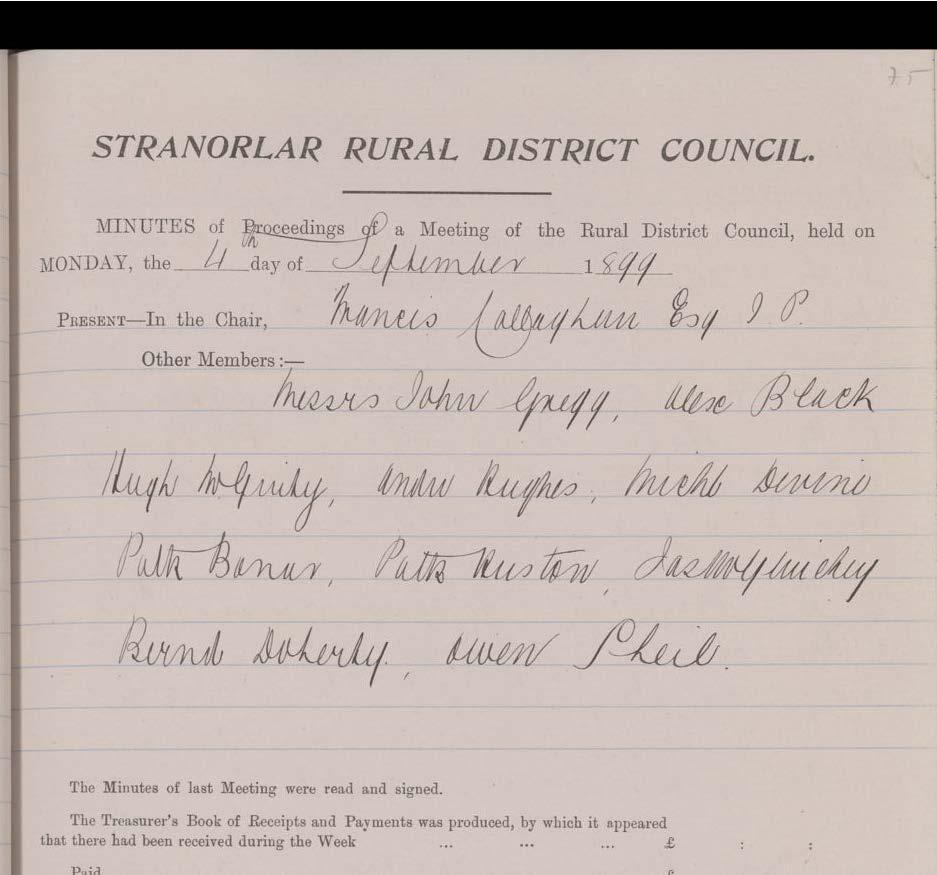 75
STRANORLAR RURAL DISTRICT COUNCIL.
MINUTES of Proceedings of a Meeting of the Rural District Council, held on
MONDAY, the 4th day of September 1899
PRESENT—In the Chair, Francis Callaghan Esq J.P.
Other Members:—
Messrs John Gregg, Alex Black
Hugh McGinty, Andw Hughes, Michl Devine
Patk Bonar, Patk Huston, Jas McGlinchey
Bernd Doherty, Owen Sheil.
The Minutes of last Meeting were read and signed.
The Treasurer's Book of Receipts and Payments was produced, by which it appeared
that there had been received during the Week ... ... ... £ : :
Paid £